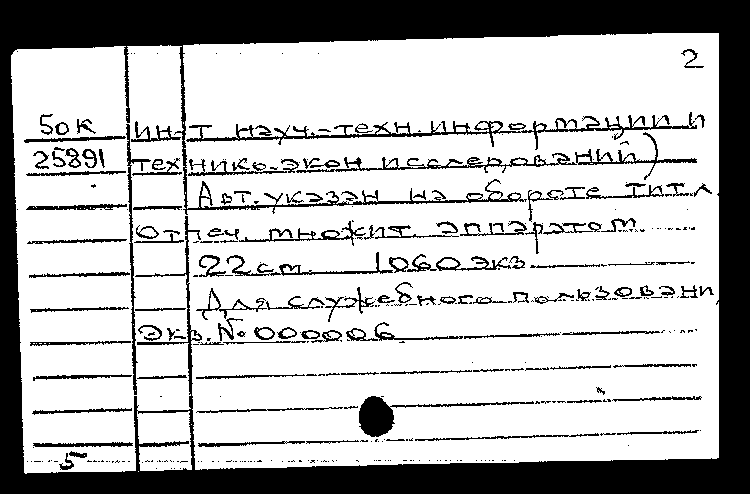 2
50к ин-т науч.-техн. информации и
25891 технико-экон исследований)
Авт. указан на обороте тит л.
Отпеч. множит. аппаратом.
22 см. 1060 экз.
Для служебного пользовани
Экз. № 000006
5